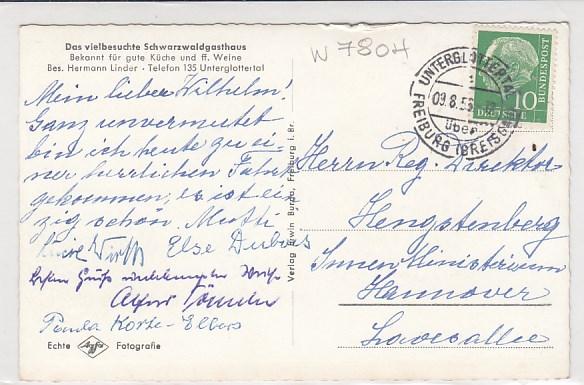 Das vielbesuchte Schwarzwaldgasthaus
Bekannt für gute Küche und ff. Weine
Bes. Hermann Linder · Telefon 135 Unterglottertal
W 7804
Mein lieber Wilhelm!
Ganz unvermutet
bin ich heute zu ei-
ner herrlichen Fahrt
gekommen, es ist ein-
zig schön. Mutti
Else Dubois
Paula Korte-Elbers
Echte Agfa Fotografie
Verlag Erwin Burda, Freiburg i. Br.
UNTERGLOTTERTAL
09.8.56
über
FREIBURG (BREISGAU)
10
DEUTSCHE
BUNDESPOST
Herrn Reg. Direktor
Hengstenberg
Innenministerium
Hannover
Lavesallee